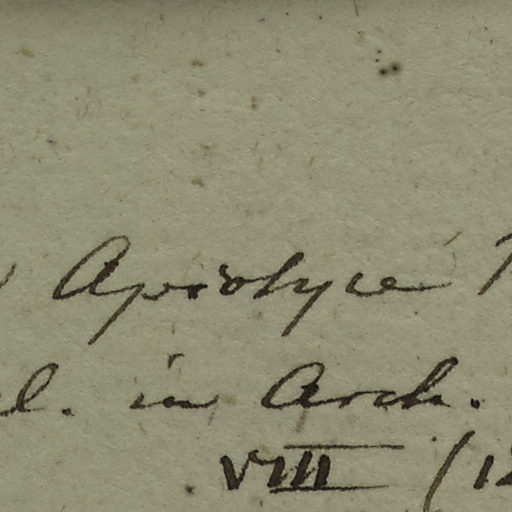 Apiolyce
l. in Arch.
VIII (18